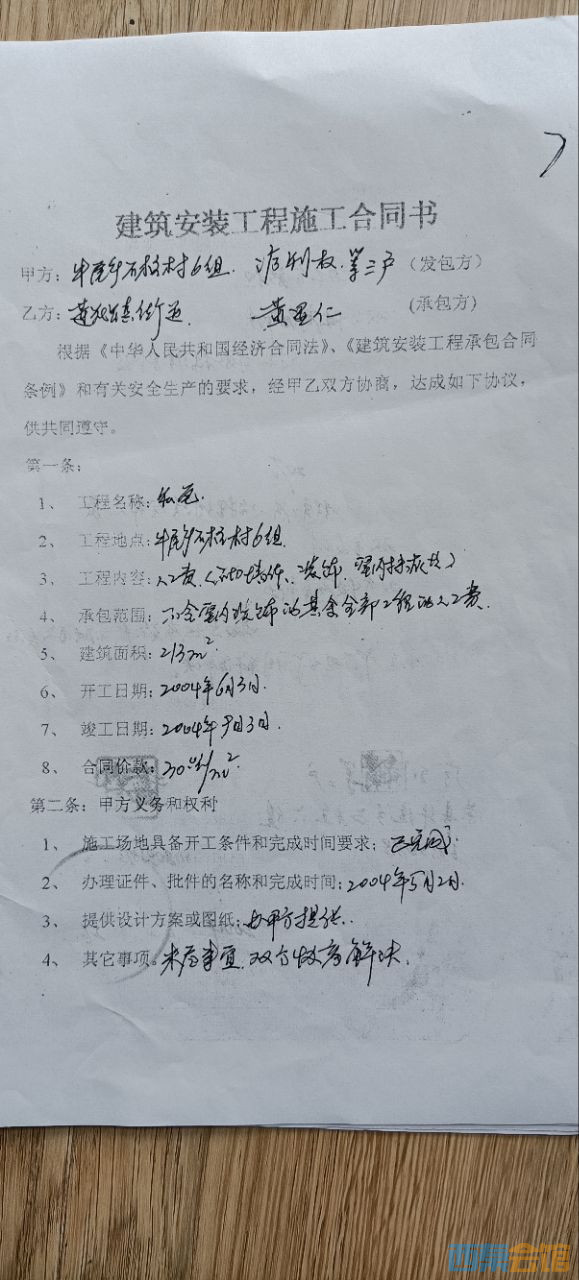 建筑安装工程施工合同书
甲方：石村6组 三户（发包方）
乙方：街 黄 仁 （承包方）
根据《中华人民共和国经济合同法》、《建筑安装工程承包合同
条例》和有关安全生产的要求，经甲乙双方协商，达成如下协议，
供共同遵守。
第一条：
1、 工程名称：
2、 工程地点：石村6组
3、 工程内容：人工费
4、 承包范围：不含室内装饰的其余全部工程的人工费.
5、 建筑面积：213m²
6、 开工日期：2004年6月3日.
7、 竣工日期：2004年9月3日.
8、 合同价款：/m²
第二条：甲方义务和权利
1、 施工场地具备开工条件和完成时间要求：已完成
2、 办理证件、批件的名称和完成时间：2004年5月2日.
3、 提供设计方案或图纸：由甲方提供.
4、 其它事项。未尽事宜.双方协商解决.
西祠会馆